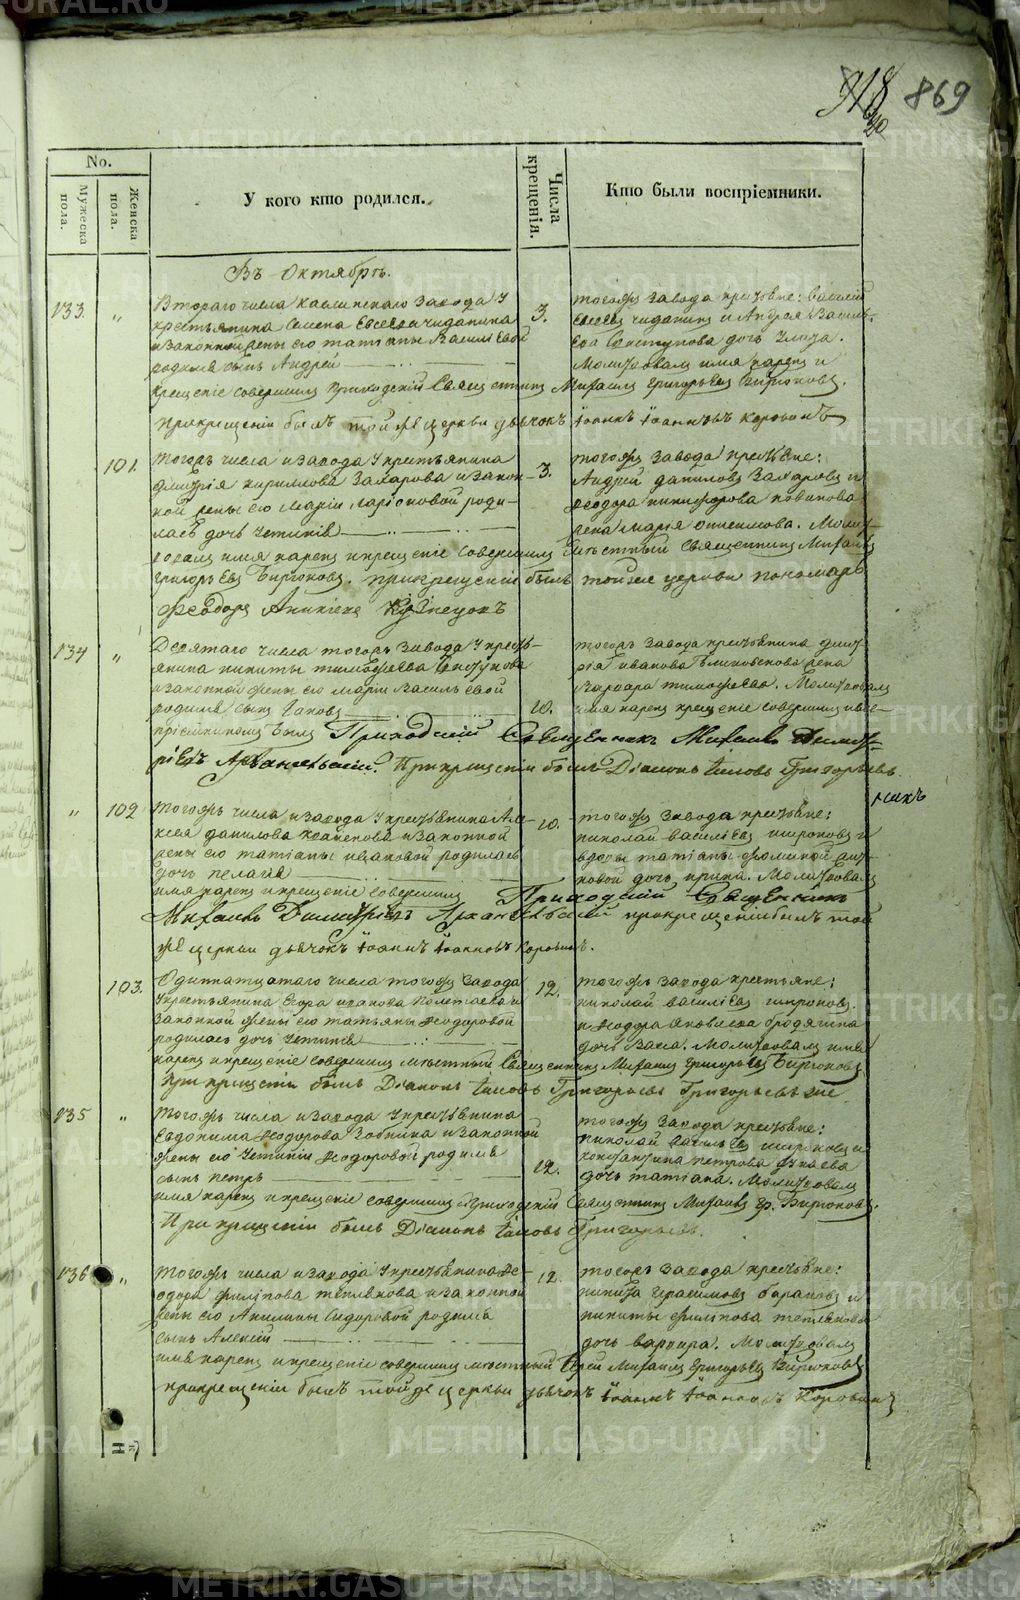 918 869
20
No.
Мужеска пола.
Женска пола.
У кого кто родился.
Числа крещенія.
Кто были воспріемники.
Въ Октябрѣ.
133. „ Втораго числа Каслинскаго завода у 3. тогожъ завода крестьяне: Василій
крестьянина Семена Евсеева Чиданина Евсеевъ Чиданинъ и Андрея Василь-
и законной жены его Татіаны Василіевой ева дочь
родился сынъ Андрей Молитвовалъ имя нарекъ и
крещеніе совершилъ приходскій Священникъ Михаилъ Григорьевъ Бирюковъ.
При крещеніи былъ той же церкви дьячокъ Іоаннъ Іоанновъ Коровинъ
101. Тогожъ числа и завода у крестьянина 3. тогожъ завода крестьяне:
Дмитрія Кирилова Захарова и закон- Андрей Даниловъ Захаровъ и
ной жены его Маріи Ларіоновой роди- Феодора Никифорова Новикова
лась дочь Устинія жена Марія Онисимова. Молит-
вовалъ имя нарекъ и крещеніе совершилъ мѣстный священникъ Михаилъ
Григорьевъ Бирюковъ. При крещеніи былъ той же церкви пономарь
Феодоръ Кузнецовъ
134 „ Десятаго числа тогожъ завода у кресть- тогожъ завода крестьянина Дмит-
янина Никиты Тимофеева рія Иванова жена
и законной жены его Маріи Васильевой Варвара Тимофеева. Молитвовалъ
родился сынъ Іаковъ 10. имя нарекъ крещеніе совершилъ и вос-
пріемникомъ былъ Приходскій Священникъ Михаилъ Димит-
ріевъ Архангельскій. При крещеніи былъ Діаконъ Іаковъ Григорьевъ.
„ 102 Тогожъ числа и завода у крестьянина Але- 10. тогожъ завода крестьяне:
ксея Данилова и законной Николай Василіевъ Широковъ и
жены его Татіаны Ивановой родилась вдовы Татіаны Фоминой
дочь Пелагія дочь Ирина. Молитвовалъ
имя нарекъ и крещеніе совершилъ Приходскій Священникъ
Михаилъ Димитріевъ Архангельскій при крещеніи былъ той
же церкви дьячокъ Іоаннъ Іоанновъ Коровинъ.
103. числа тогожъ завода 12. тогожъ завода крестьяне:
у крестьянина Егора Иванова и Николай Василіевъ Широковъ
законной жены его Татьяны Феодоровой и Феодора Яковлева Бродягина
родилась дочь Устинія дочь Васса. Молитвовалъ имя
нарекъ и крещеніе совершилъ мѣстный Священникъ Михаилъ Григорьевъ Бирюковъ
При крещеніи былъ Діаконъ Іаковъ Григорьевъ
135 „ Тогожъ числа и завода у крестьянина тогожъ завода крестьяне:
Евдокима Феодорова Зобнина и законной Николай Васильевъ Широковъ и
жены его Устиніи Феодоровой родился Константина Петрова
сынъ Петръ 12. дочь Татіана. Молитвовалъ
имя нарекъ и крещеніе совершилъ приходскій Священникъ Михаилъ Гр. Бирюковъ.
При крещеніи былъ Діаконъ Іаковъ Григорьевъ.
136 „ Тогожъ числа и завода у крестьянина Фе- 12. тогожъ завода крестьяне:
одора Филипова Теплякова и законной Никита Герасимовъ Барановъ и
жены его Акилины Сидоровой родился Никиты Филипова Теплякова
сынъ Алексій дочь Варвара. Молитвовалъ
имя нарекъ и крещеніе совершилъ мѣстный Іерей Михаилъ Григорьевъ Бирюковъ
при крещеніи былъ той же церкви дьячокъ Іоаннъ Іоанновъ Коровинъ
METRIKI.GASO-URAL.RU